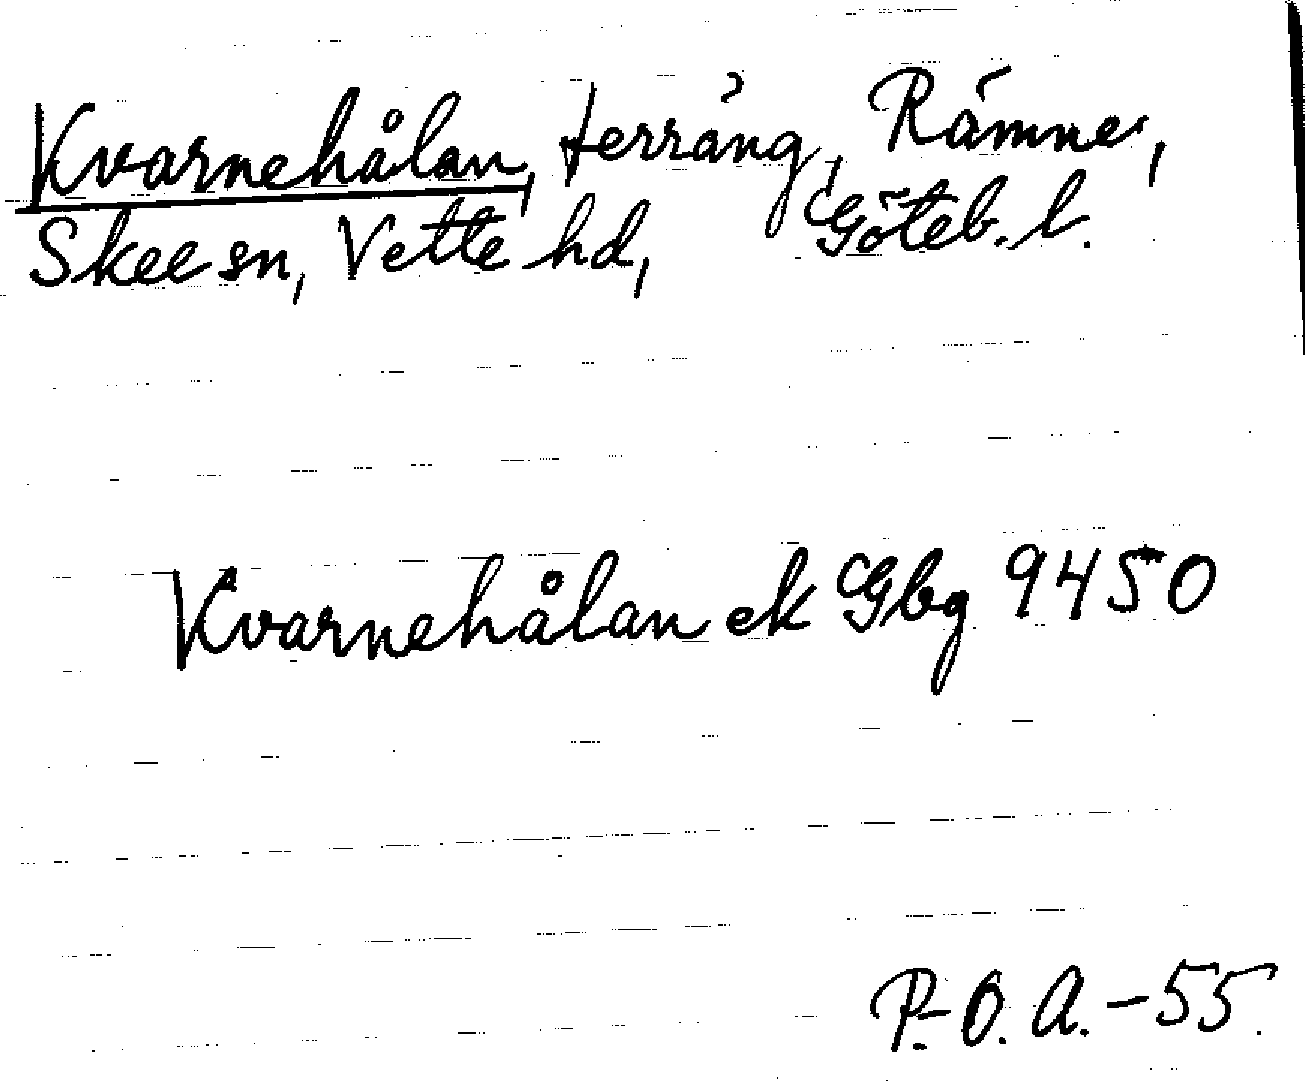 Kvarnehålan, terräng, Rämne,
Skee sn, Vette hd, Göteb. l.
Kvarnehålan ek Gbg 9450
P.-O. A. -55.